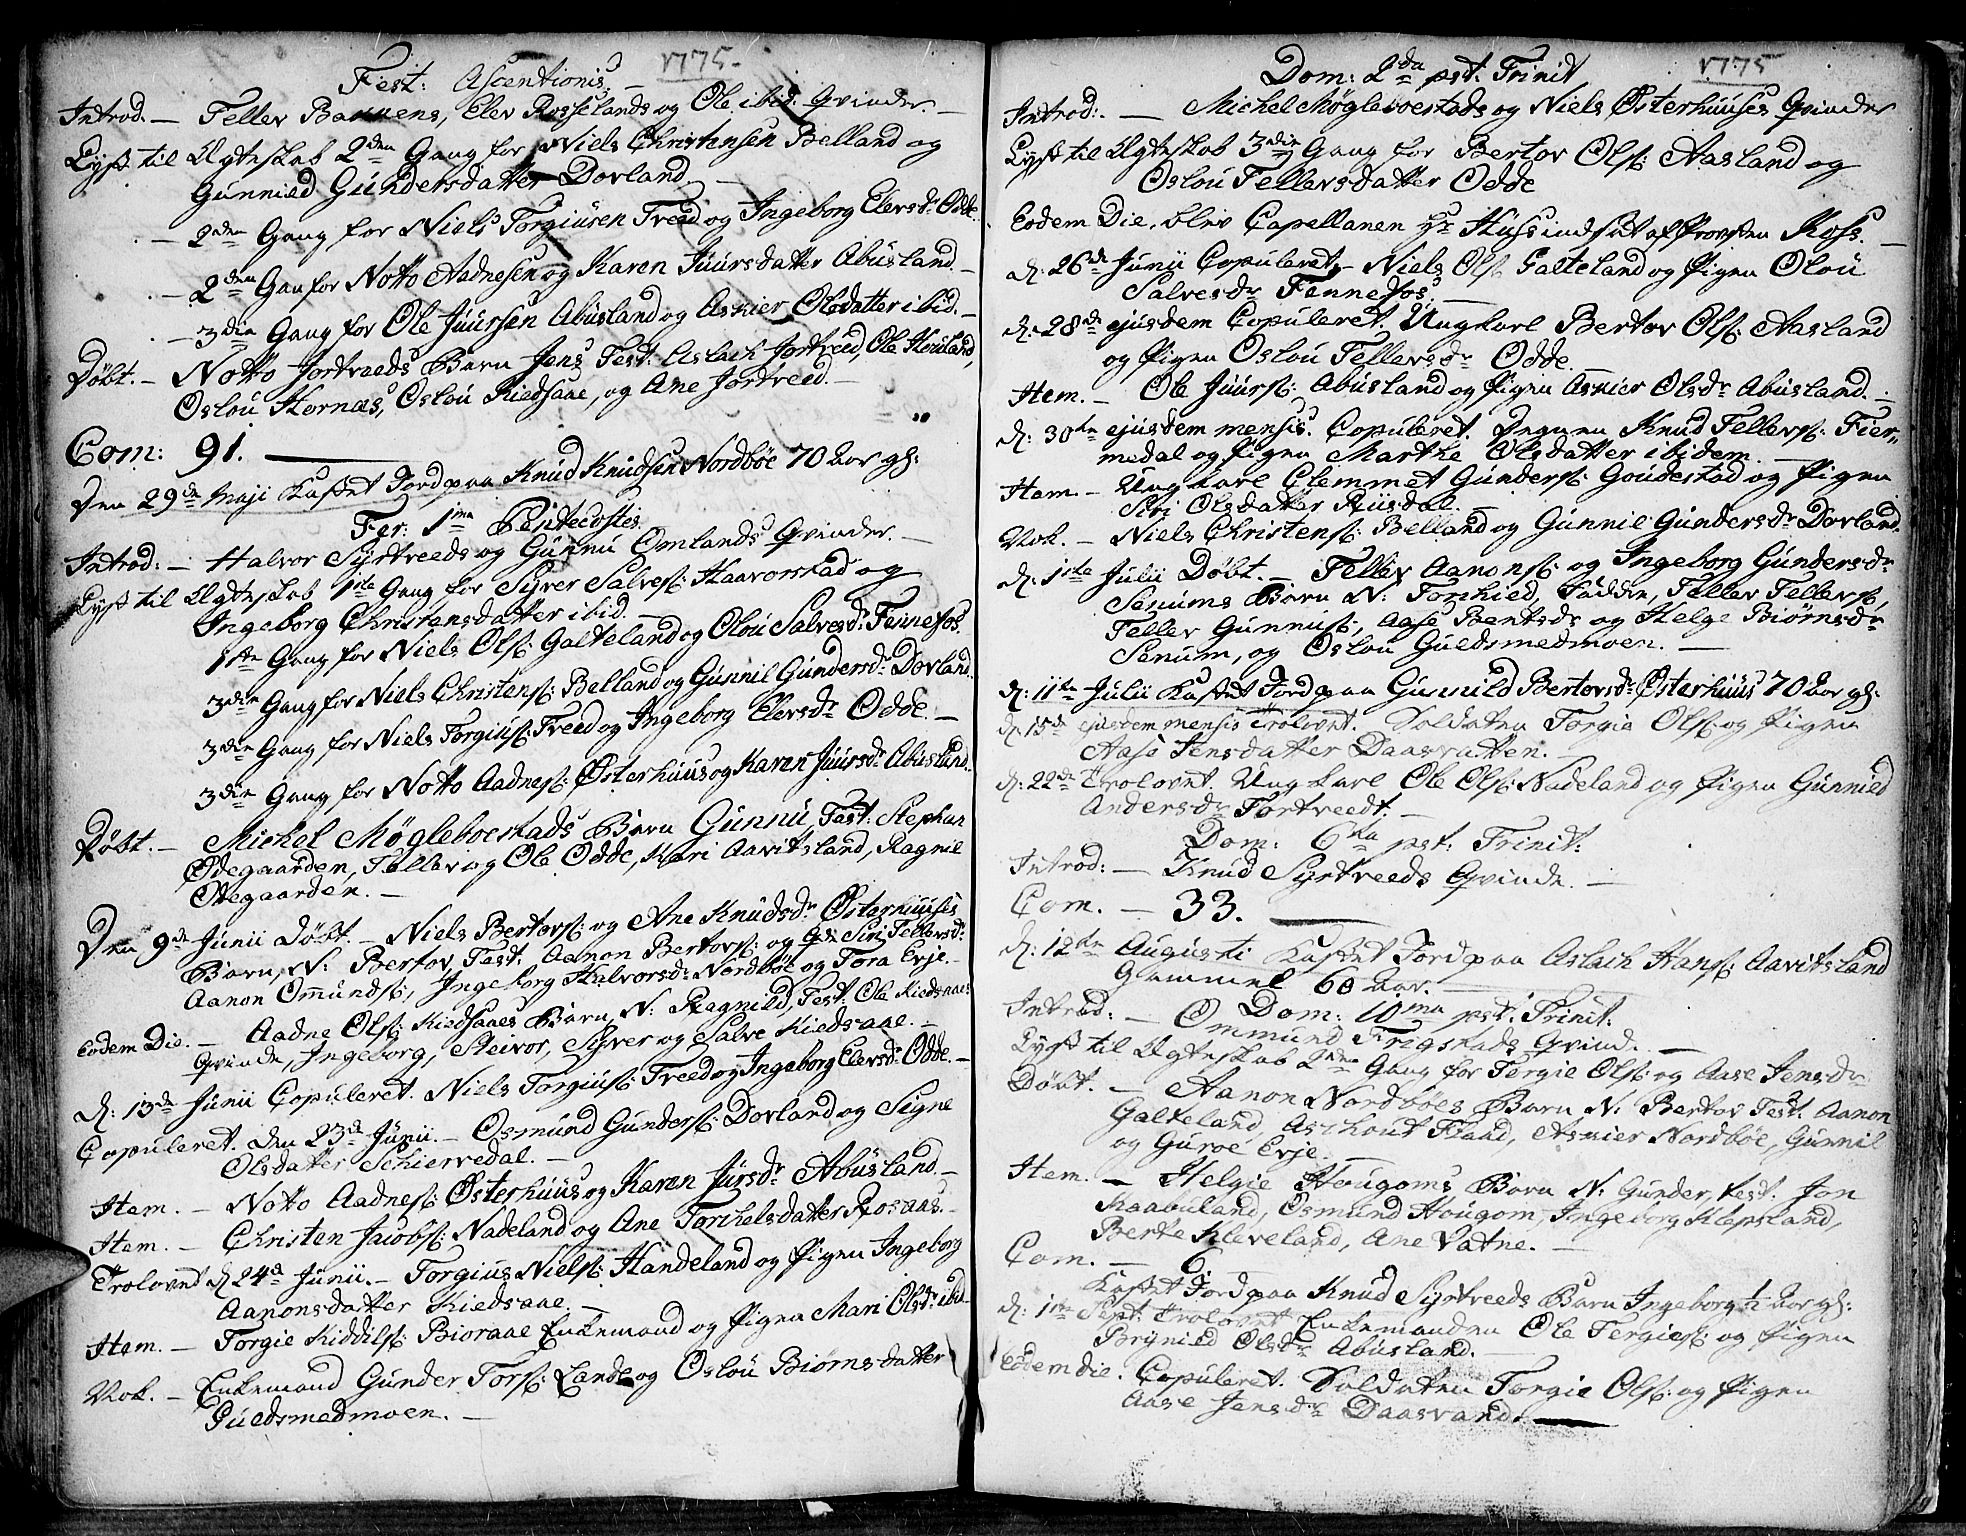 1775.
Fest: Ascentionis
Introd. — Tellev Barnens, Elev Rosselands og Ole ibid: Qvinder. —
Lyst til Ægteskab 2den Gang for Niels Christensen Belland og
Gunnild Gundersdatter Dovland. —
— 2den Gang for Niels Torgiusen Treed og Ingeborg Elevsdr Odde.
— 2den Gan for Notto Aadnesen og Karen Juursdatter Abusland. —
— 3die Gang for Ole Juursen Abusland og Asnier Olsdatter ibid. —
Døbt. — Notto Jortveeds Barn Jens Test: Aslach Jortveed, Ole
Oslou Hornæs, Oslou Kiedsaae, og Ane Jortveed. —
Com: 91. —
Den 29de Maji Kastet Jord paa Knud Knudsen Nordbøe 70 Aar gl:
Fer: 1ma Pentecostes.
Introd: — Halvor Syrtveeds og Gunnu Omlands Qvinder. —
Lyst til Ægteskab 1ste Gang for Syver Salves: Haavorstad og
Ingeborg Christensdatter ibid. —
1ste Gang for Niels Ols: Galteland og Olou Salvesdr Fennefos.
3die Gang for Niels Christens: Belland og Gunnil Gundersdr Dovland.
3die Gang for Niels Torgius: Treed og Ingeborg Elevsdr Odde. —
3die Gang for Notto Aadnes: Østerhuus og Karen Juursdr Abusland.
Døbt. — Michel Møgleboestads Barn Gunnu Test: Stephan
Ødegaarden, Tellev og Ole Odde, Kari Aavitsland, Ragnil
Ødegaarden. —
Den 9de Junii Døbt. — Niels Bertovs: og Ane Knudsdr Østerhuuses
Barn, N: Bertov, Test: Aanon Bertovs: og Siri Tellevsdr
Aanon Omunds:, Ingeborg Halvorsdr Nordbøe og Tora Erje. —
Eodem Die. — Aadne Ols: Kiedsaaes Barn, N: Ragnild, Test: Ole Kiedsaaes
Qvinde, Ingeborg, Steivor, Syver og Salve Kiedsaae. —
d: 13de Junii Copuleret. Niels Torgius: Treed og Ingeborg Elevsdr Odde. —
Copuleret. den 23de Junii. — Osmund Gunders: Dovland og Signe
Olsdatter Schiervedal. —
Item. — Notto Aadnes: Østerhuus og Karen Jursdr Abusland. —
Item. — Christen Jacobs: Nadeland og Ane Torchelsdatter Rosaas. —
Trolovet d: 24de Junii. — Torgius Niels: Handeland og Pigen Ingeborg
Aanonsdatter Kiedsaae. —
Item. — Torgie Kiddils: Bioraae Enkemand og Pigen Mari Olsdr ibid.
Nok. — Enkemand Gunder Tors: Lande og Oslou Biørnsdatter
Guldsmedmoen. —
1775
Dom: 2da pst: Trinit
Introd: — Michel Møgleboestads og Niels Østerhuuses Qvinder
Lyst til Ægteskab 3die Gang for Bertov Ols: Aasland og
Oslou Tellevsdatter Odde
Eodem Die, blev Capellanen Hr Huss indsat af Provsten Koss. —
d: 26de Junii Copuleret, — Niels Ols: Galteland og Pigen Olou
Salvesdr Fennefos. —
d: 28de ejusdem Copuleret. Ungkarl Bertov Ols: Aasland
og Pigen Oslou Tellevsdr Odde.
Item. — Ole Juurs: Abusland og Pigen Asnier Olsdr Abusland. —
d: 30te ejusdem mensis. Copuleret. Degnen Knud Tellevs: Fier„
medal og Pigen Marthe Olsdatter ibidem. —
Item. — Ungkarl Clemmet Gunders: Goudestad og Pigen
Siri Olsdatter Riusdal. —
Nok. — Niels Christens: Belland og Gunnil Gundersdr Dovland.
d: 1ste Julii Døbt. — Tellev Aanons: og Ingeborg Gundersdr
Senums Barn N: Torchied, Faddere, Tellev Tellevs:,
Tellev Gunnus:, Aase Bentsdr og Helge Biørnsdr
Senum, og Oslou Guldsmedmoen. —
d: 11te Julii Kastet Jord paa Gunnild Bertovsdr Østerhuus 70 Aar gl:
d: 15de ejusdem mensis Trolovet. Soldaten Torgie Ols: og Pigen
Aase Jensdatter Daasvatten. —
d: 22de Trolovet. Ungkarl Ole Ols: Nadeland og Pigen Gunnild
Andersdr Tortveedt. —
Dom: 6ta pst: Trinit:
Introd: — Knud Syrtveeds Qvinde. —
Com. — 33. —
d: 12te Augusti Kastet Jord paa Aslach Hans: Aavitsland
Gammel 60 Aar. —
Dom: 10ma pst: Trinit:
Introd: — Ommund Fregstads Qvinde. —
Lyst til Ægteskab 2den Gang for Torgie Ols: og Aase Jensdr
Døbt. — Aanon Nordbøes Barn N: Bertov Test: Aanon
Galteland, Aschout Flaad, Asnier Nordbøe, Gunnil
og Guroe Erje. —
Item. — Helgie Hougoms Barn N: Gunder, Test: Jon
Kaabuland, Osmund Hougom, Ingeborg Klepsland,
Berte Kleveland, Ane Vatne. —
Com. — 6.
Kastet Jord paa Knud Syrtveeds Barn Ingeborg ½ Aar gl:
d: 1ste Sept: Trolovet Enkemanden Ole Tergies: og Pigen
Brynild Olsdr Abusland. —
Eodem die. Copuleret. Soldaten Torgie Ols: og Pigen
Aase Jensdr Daasvand. —